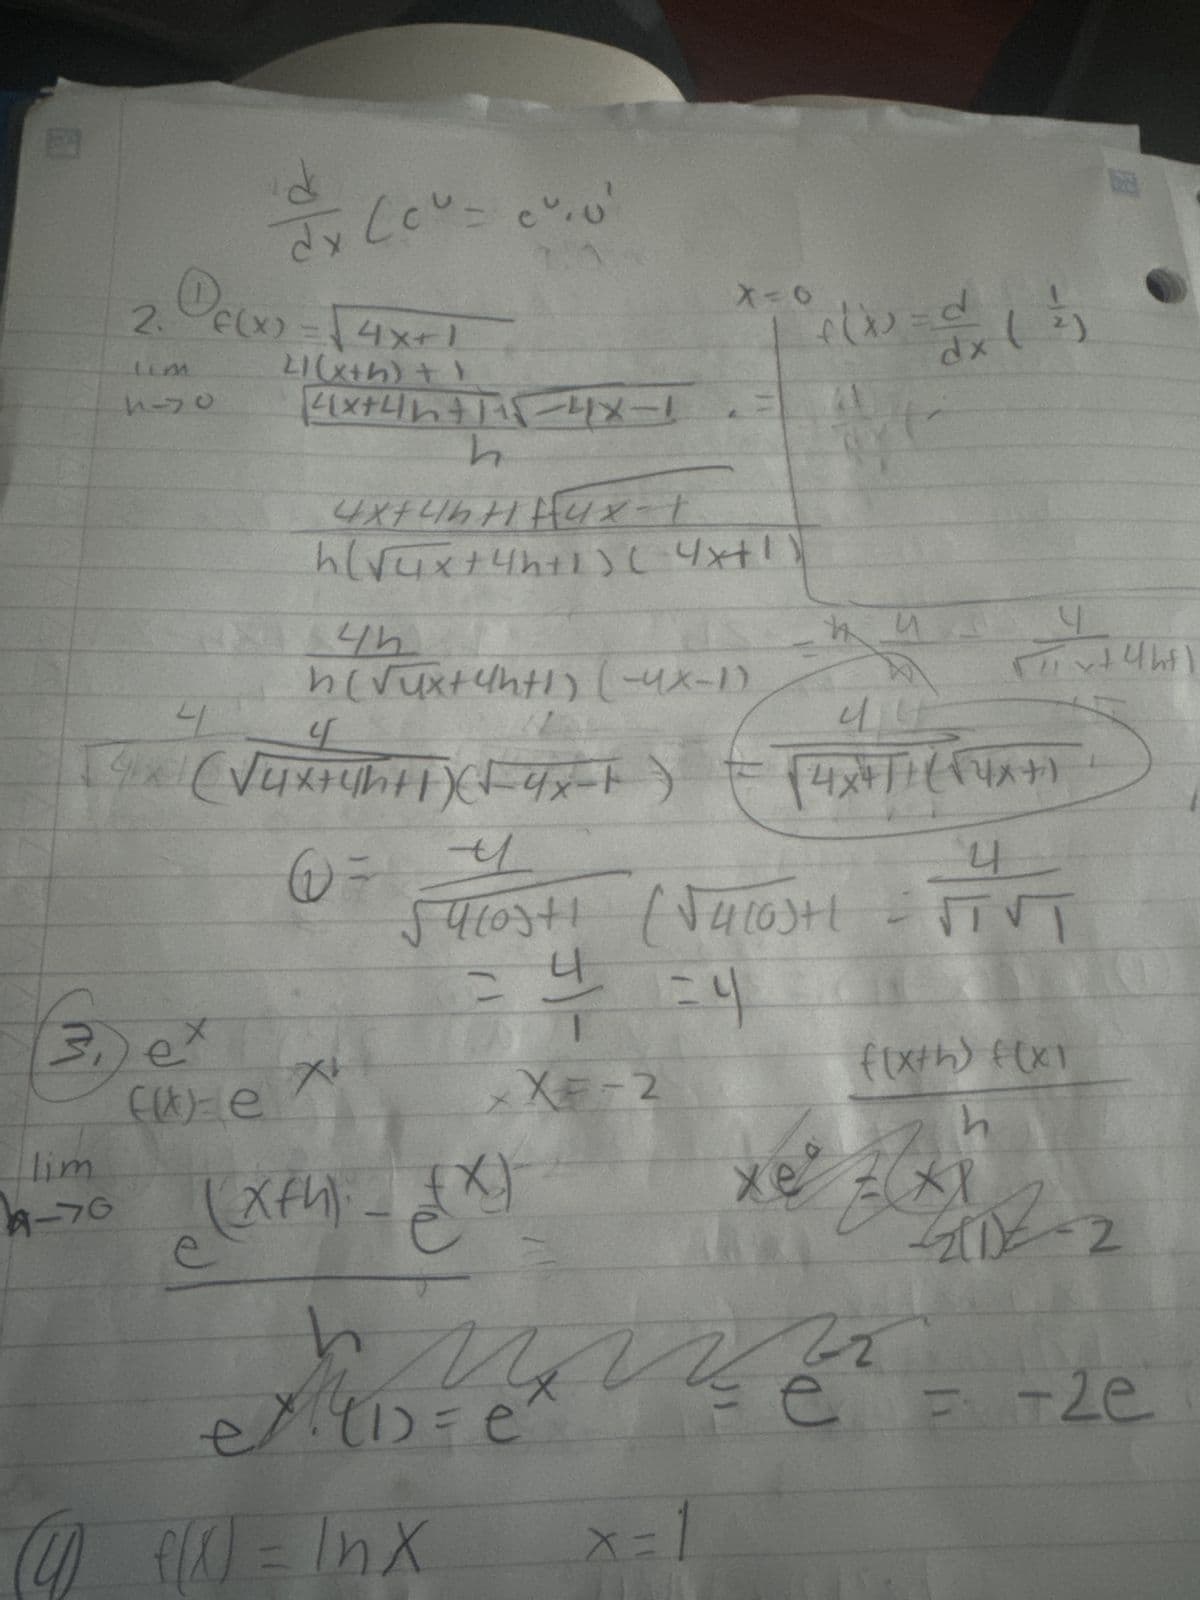 d/dx (c^u = c^u · u'
2. ① f(x) = √4x+1
x=0
f'(x) = d/dx ( 1/2 )
lim h→0
4(x+h) + 1
√4x+4h+1 √-4x-1 / h
4x+4h+1 + √4x-1 / h(√4x+4h+1)( 4x+1)
4h / h(√4x+4h+1) (-4x-1)
4 / (√4x+4h+1)(√-4x-1 ) = 4 / √4x+1 + (√4x+1)
① = 4 / √4(0)+1 (√4(0)+1 = 4 / √1 √1
= 4/1 = 4
3.) e^x
f(x) = e^x
x = -2
f(x+h) f(x) / h
lim h→0 e^(x+h) - e^(x) / h =
-2(1) = -2
e^x · (1) = e^x = e^-2 = -2e
④ f(x) = ln x x=1